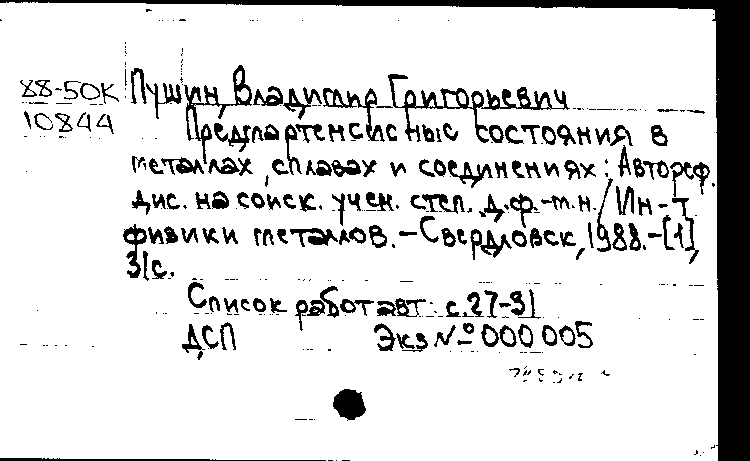 88-50К Пушин, Владимир Григорьевич
10844 Предмартенситные состояния в
металлах, сплавах и соединениях: Автореф.
дис. на соиск. учен. степ. д.ф.-м.н./Ин-т
физики металлов. – Свердловск, 1988. – [1],
31с.
Список работ авт: с.27-31
ДСП Экз № 000005